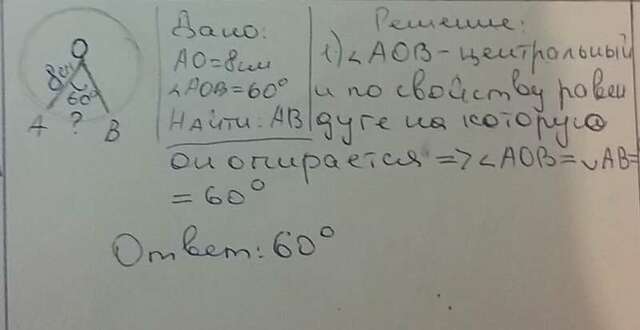 O
8см
60°
A ? B
Дано:
AO=8см
∠AOB=60°
Найти: AB
Решение:
1)∠AOB-центральный
и по свойству равен
дуге на которую
он опирается =>∠AOB=◡AB=
=60°
Ответ: 60°